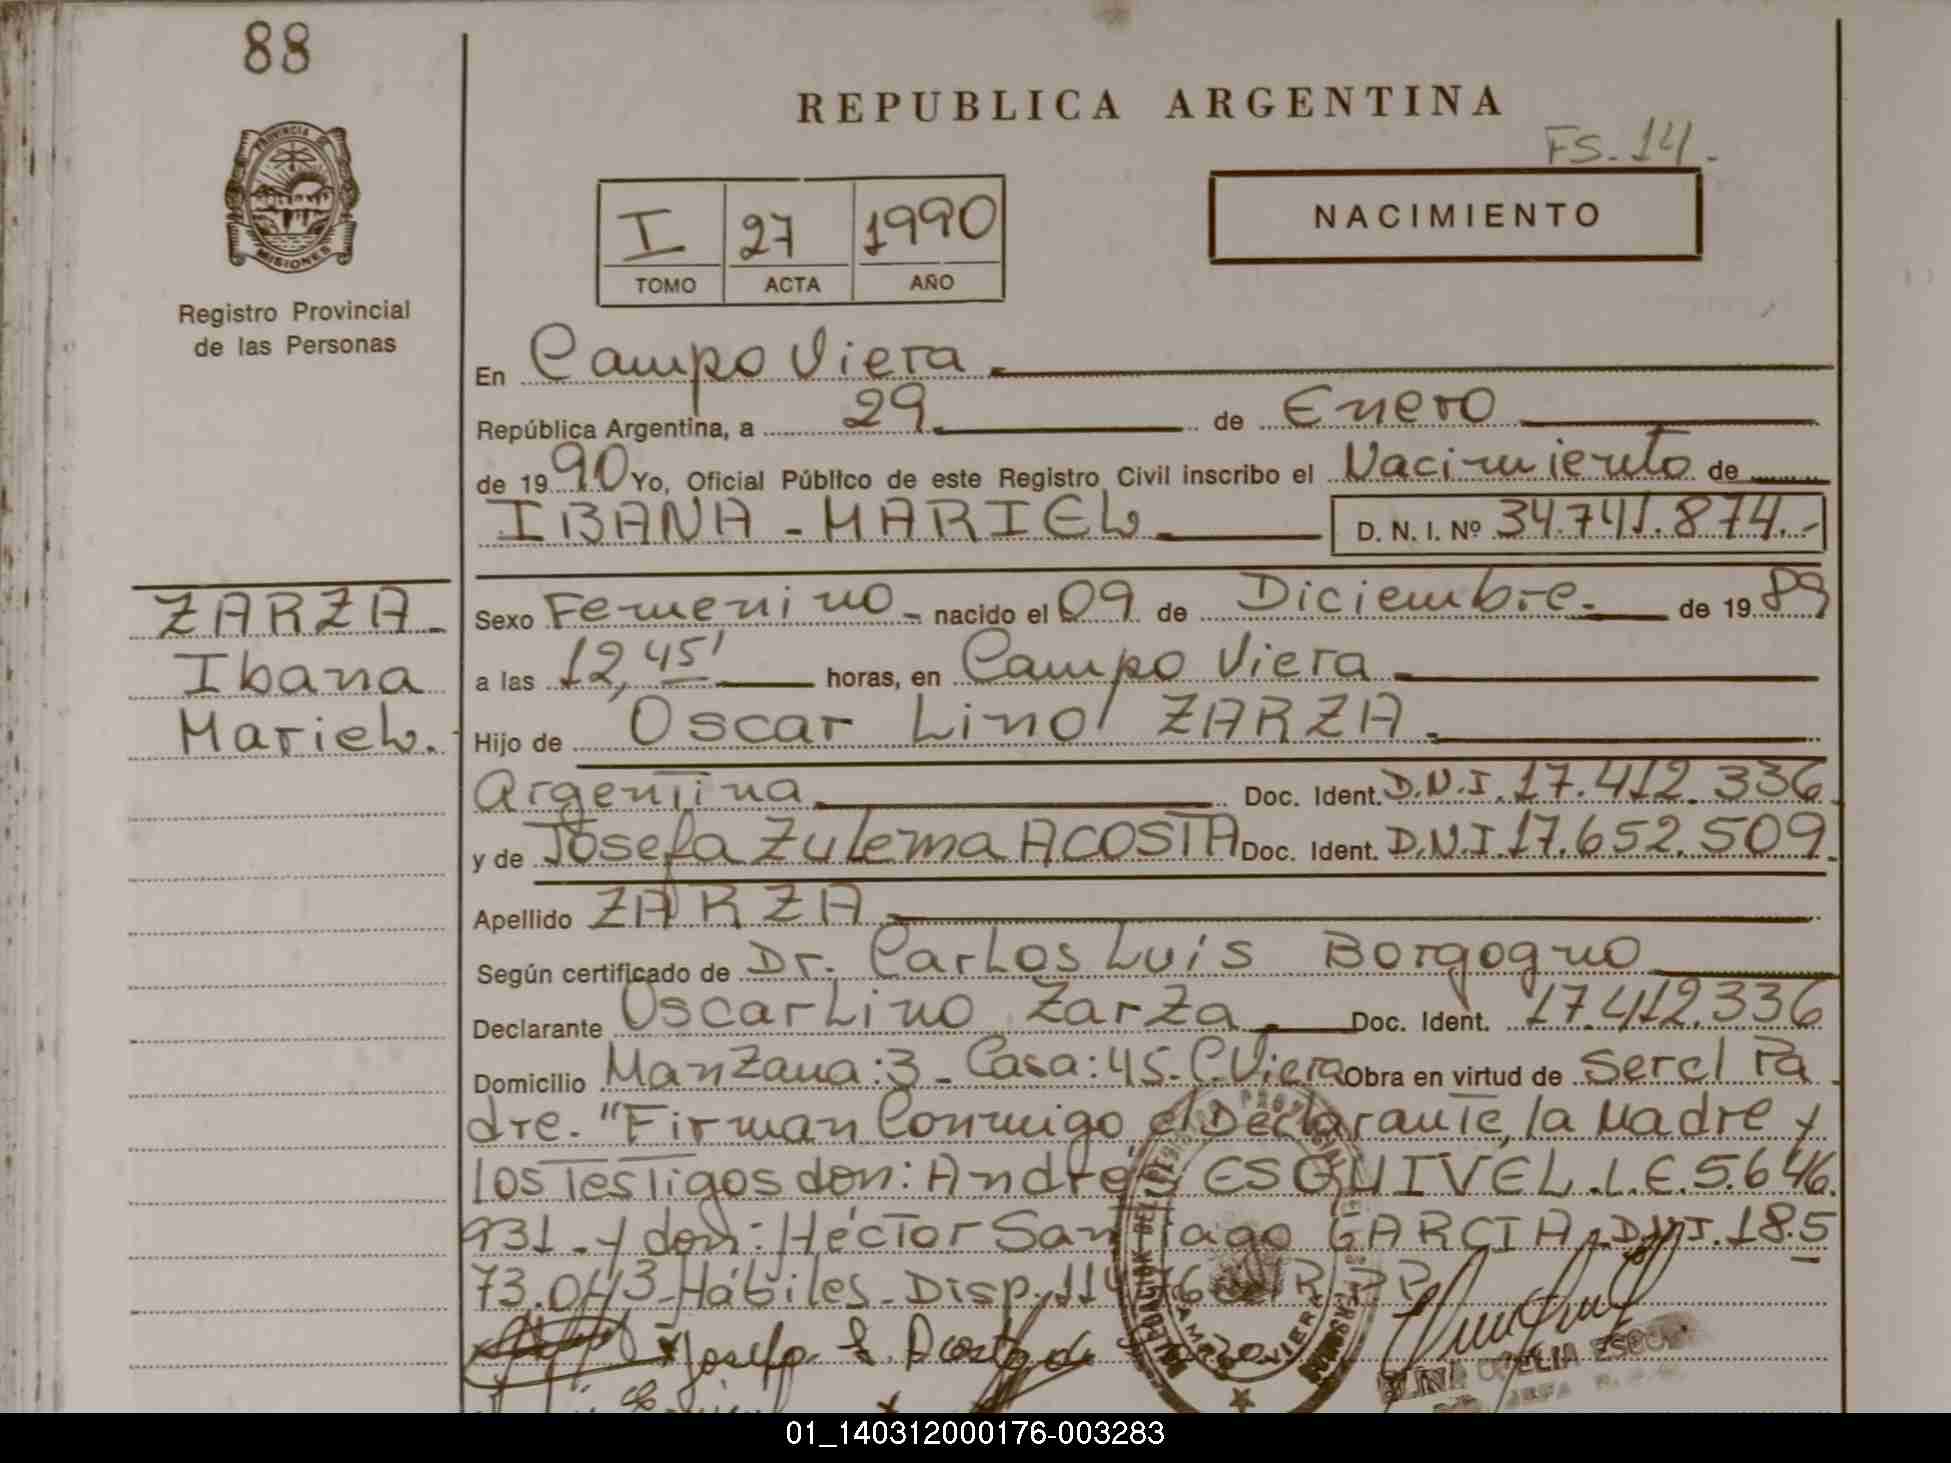 88
REPUBLICA ARGENTINA
FS. 14.
PROVINCIA DE
MISIONES
Registro Provincial
de las Personas
I 27 1990
TOMO ACTA AÑO
NACIMIENTO
En Campo Viera
República Argentina, a 29 de Enero
de 1990 Yo, Oficial Público de este Registro Civil inscribo el Nacimiento de
IBANA - MARIEL D. N. I. Nº 34.741.874.-
ZARZA
Ibana
Mariel.
Sexo Femenino - nacido el 09 de Diciembre. de 1989
a las 12,45' horas, en Campo Viera
Hijo de Oscar Lino ZARZA.
Argentina Doc. Ident. D.N.I. 17.412.336
y de Josefa Zulema ACOSTA Doc. Ident. D.N.I 17.652.509.
Apellido ZARZA
Según certificado de Dr. Carlos Luis Borgogno
Declarante Oscar Lino Zarza Doc. Ident. 17.412.336
Domicilio Manzana:3 - Casa:45-C.Viera Obra en virtud de Ser el Pa
dre. "Firman Conmigo el Declarante, la Madre y
los Testigos don: Andrés ESQUIVEL.L.E.5.646.
931 - y don: Héctor Santiago GARCIA. D.N.I. 18.5
73.043-Hábiles-Disp. 114/76
Josefa Z. Acosta de
CAMPO VIERA
01_140312000176-003283